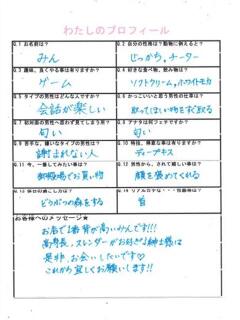 わたしのプロフィール
Q.1 お名前は？
Q.2 自分の性格は？動物に例えると？
みん
せっかち、チーター
Q.3 趣味、良くやる事は有りますか？
Q.4 好きな食べ物、飲み物は？
ゲーム
ソフトクリーム、ホワイトモカ
Q.5 タイプの男性はどんなんですか？
会話が楽しい
取ってほしい物をすぐ取る
Q.8 アナタは何フェチですか？
匂い
匂い
Q.9 苦手な、嫌いなタイプの男性は？
Q.10 特技、得意な事は有りますか？
謝まれない人
ディープキス
Q.11 今、一番してみたい事は？
Q.12 男性から、されて嬉しい事は？
御殿場でお買い物
顔を褒めてくれる
Q.13 休日の過ごし方は？
どうぶつの森をする
首
お客様へのメッセージ★
お店で1番背が高いみんです!!!
高身長、スレンダーがお好きな紳士様は
是非、お会いしたいです♡
これから宜しくお願いします!!